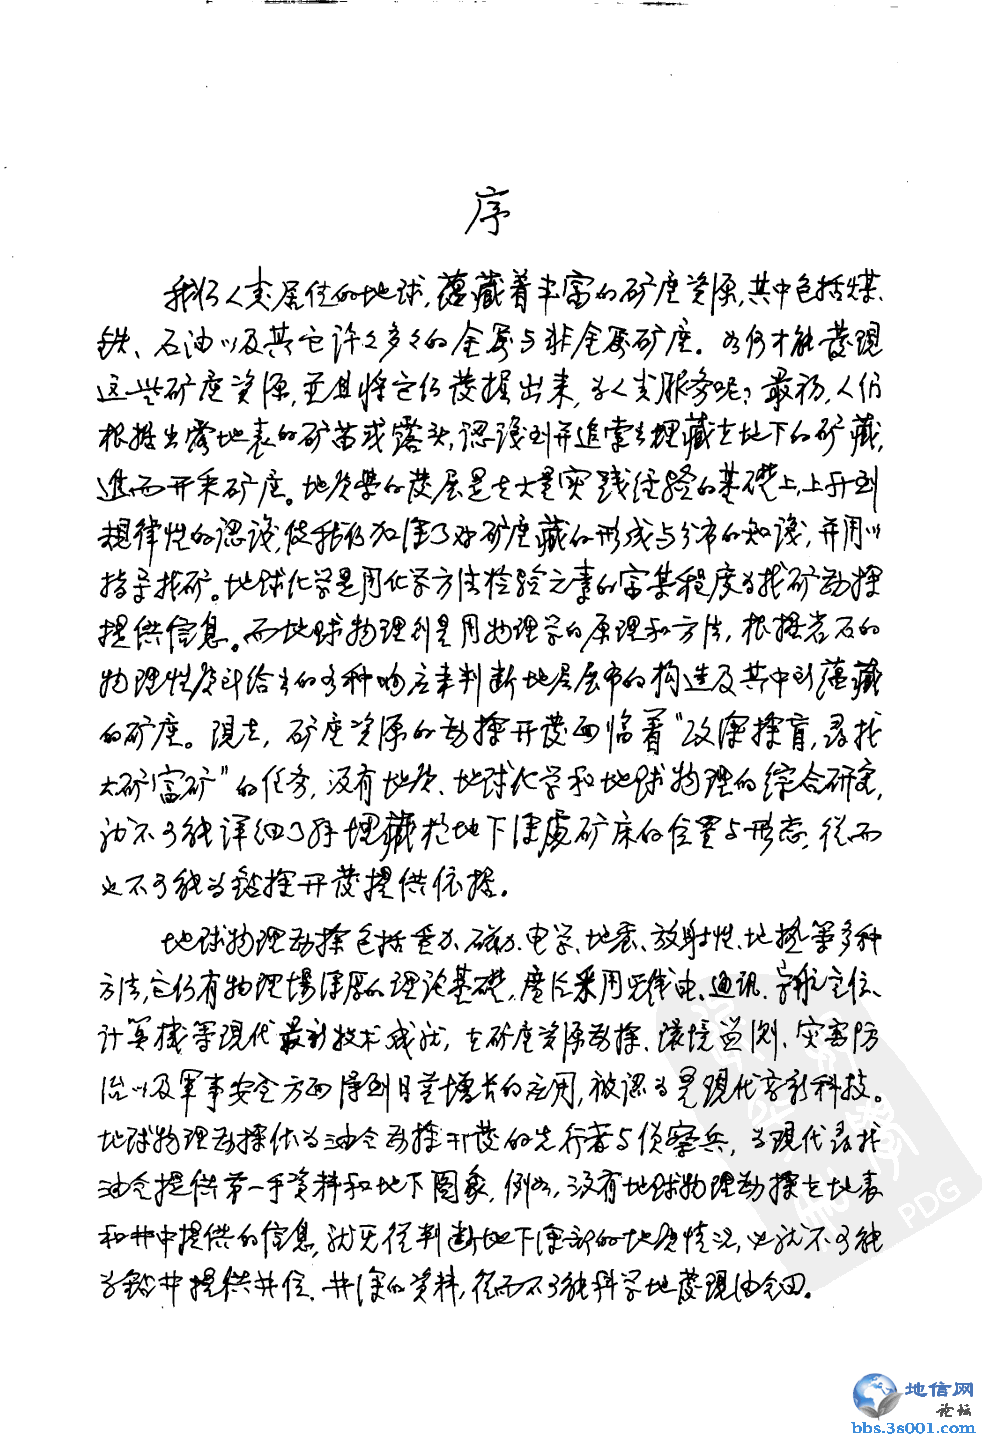 序
我们人类居住的地球,蕴藏着丰富的矿产资源,其中包括煤、
铁、石油以及其它许许多多的金属与非金属矿产。如何才能發現
这些矿产资源,并且将它们發掘出来,为人类服务呢?最初,人们
根据出露地表的矿苗或露头,認識到并追索出埋藏在地下的矿藏,
进而开采矿产。地质学的發展是在大量实践经验的基礎上,上升到
規律性的認識,使我们加深了对矿产蔵的形成与分布的知識,并用以
指导找矿。地球化学是用化学方法检验元素的富集程度为找矿勘探
提供信息。而地球物理则是用物理学的原理和方法,根据岩石的
物理性质所给出的各种响应来判断地层层中的构造及其中所蕴藏
的矿产。現在,矿产资源的勘探开發面临着"攻深探盲,尋找
大矿富矿"的任务,没有地质、地球化学和地球物理的综合研究,
就不可能详细了解埋藏於地下深處矿床的位置与形态,從而
也不可能为鑽探开發提供依据。
地球物理勘探包括重力、磁力、电学、地震、放射性、地熱等多种
方法,它们有物理場深厚的理论基礎,廣泛采用无线电、通訊、宇航定位、
计算機等現代最新技术成就,在矿产资源勘探、環境监测、灾害防
治以及軍事安全方面得到日益增长的应用,被認为是現代高新科技。
地球物理勘探作为油气勘探开發的先行者与侦察兵,为現代尋找
油气提供第一手资料和地下圖象,例如,没有地球物理勘探在地表
和井中提供的信息,就无從判断地下深部的地质情况,也就不可能
为鑽井提供井位、井深的资料,從而不可能科学地發現油气田。
PDG
地信网
论坛
bbs.3s001.com